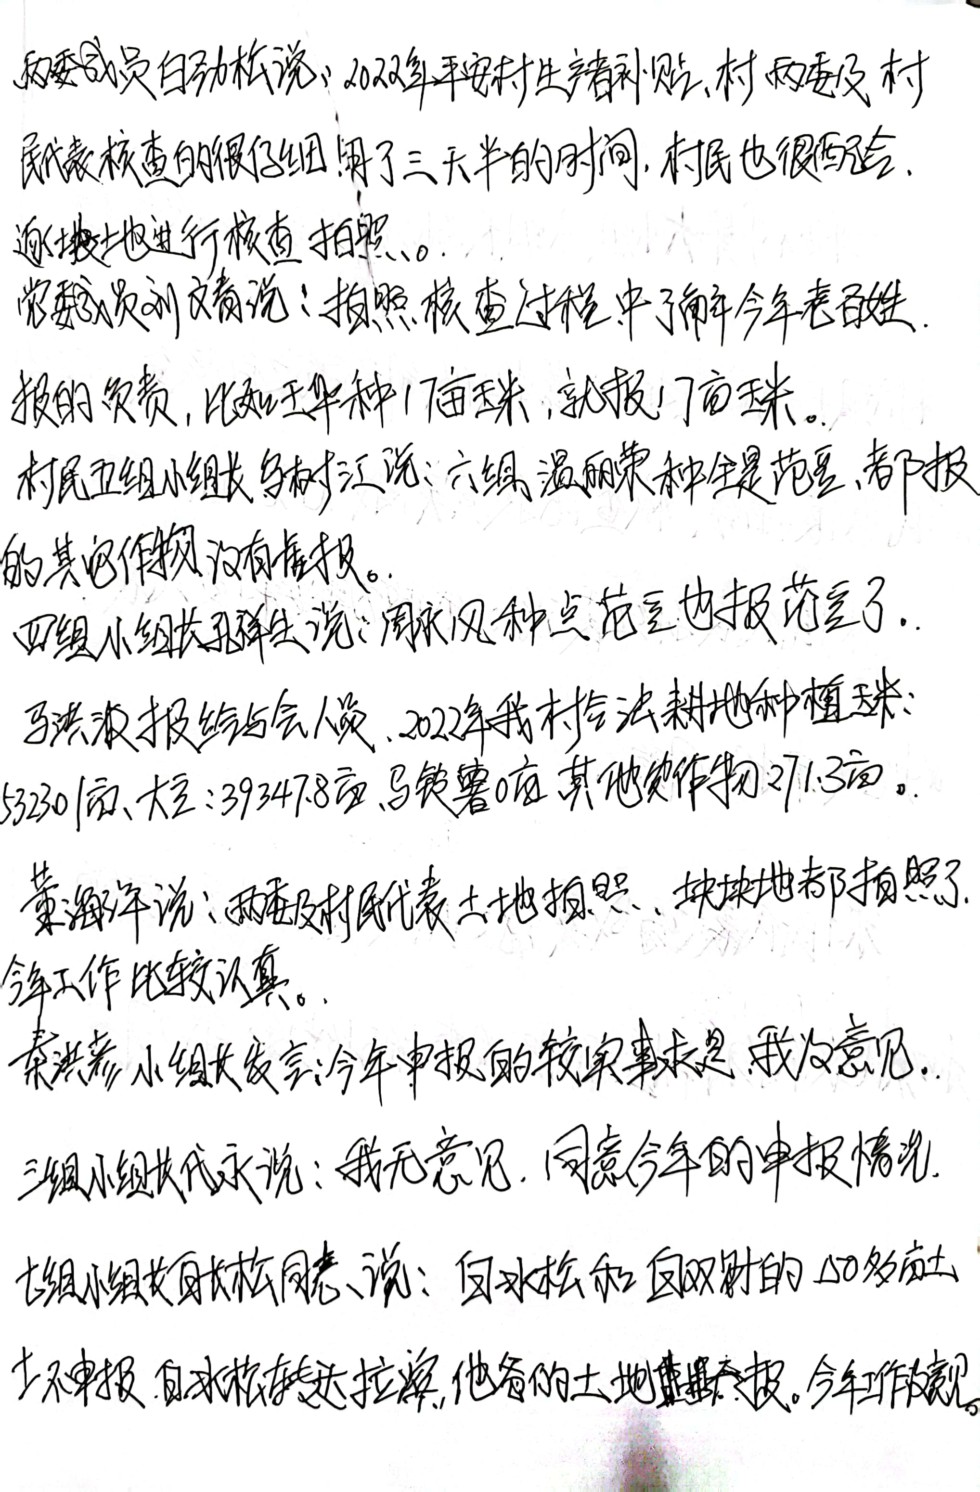 两委成员白劲松说：2022年平安村生产者补贴、村两委及村
民代表核查的很仔细，用了三天半的时间，村民也很配合.
逐块土地进行核查拍照。
党委成员刘文青说：拍照核查过程中了解今年老百姓.
报的负责，比如王华种17亩玉米，就报17亩玉米。
村民五组小组长 说：六组温丽荣种全是芸豆、都报
的其它作物没有虚报。
四组小组长孔祥生说：周永风种点芸豆也报芸豆了.
马洪波报给与会人员、2022年我村合法耕地种植玉米：
53230亩、大豆：39347.8亩、马铃薯0亩 其他 作物271.3亩。
董海洋说：两委及村民代表土地拍照、块块地都拍照了.
今年工作比较认真。
秦洪彦小组长发言：今年申报的较实事求是，我没意见.
三组小组长代永说：我无意见.同意今年的申报情况.
七组小组长白长松同志、说：白冰松和白双 的150多亩土
土不申报 白冰松 他 的土地 报。今年工作没意见。